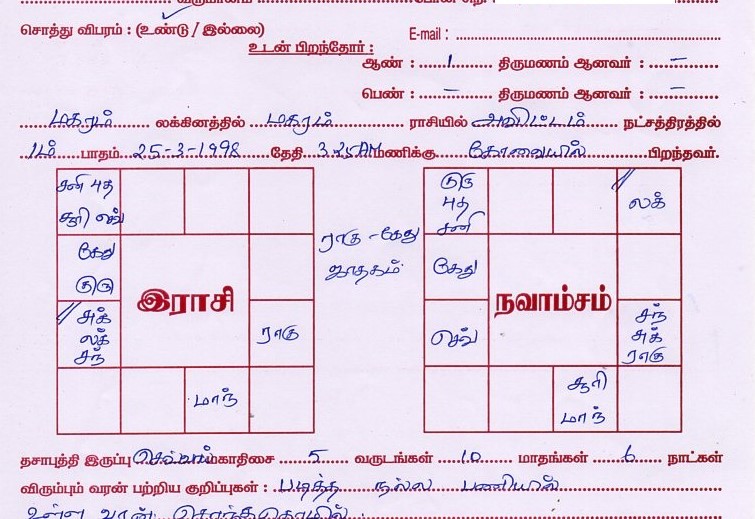 சொத்து விபரம் : (உண்டு / இல்லை) E-mail :
உடன் பிறந்தோர் :
ஆண் : 1 திருமணம் ஆனவர் : –
பெண் : – திருமணம் ஆனவர் : –
மகரம் லக்கினத்தில் மகரம் ராசியில் அவிட்டம் நட்சத்திரத்தில்
1ம் பாதம் 25-3-1998 தேதி 3.25AM மணிக்கு கோவையில் பிறந்தவர்.
சனி புத
சூரி செவ்
கேது
குரு
சுக்
லக்
சந்
இராசி
ராகு
மாந்
ராகு - கேது
ஜாதகம்
குரு
புத
சனி
லக்
கேது
நவாம்சம்
செவ்
சந்
சுக்
ராகு
சூரி
மாந்
தசாபுத்தி இருப்பு செவ்வாய்மகாதிசை 5 வருடங்கள் 10 மாதங்கள் 6 நாட்கள்
விரும்பும் வரன் பற்றிய குறிப்புகள் : படித்த நல்ல பணியில்
உள்ள வரன்